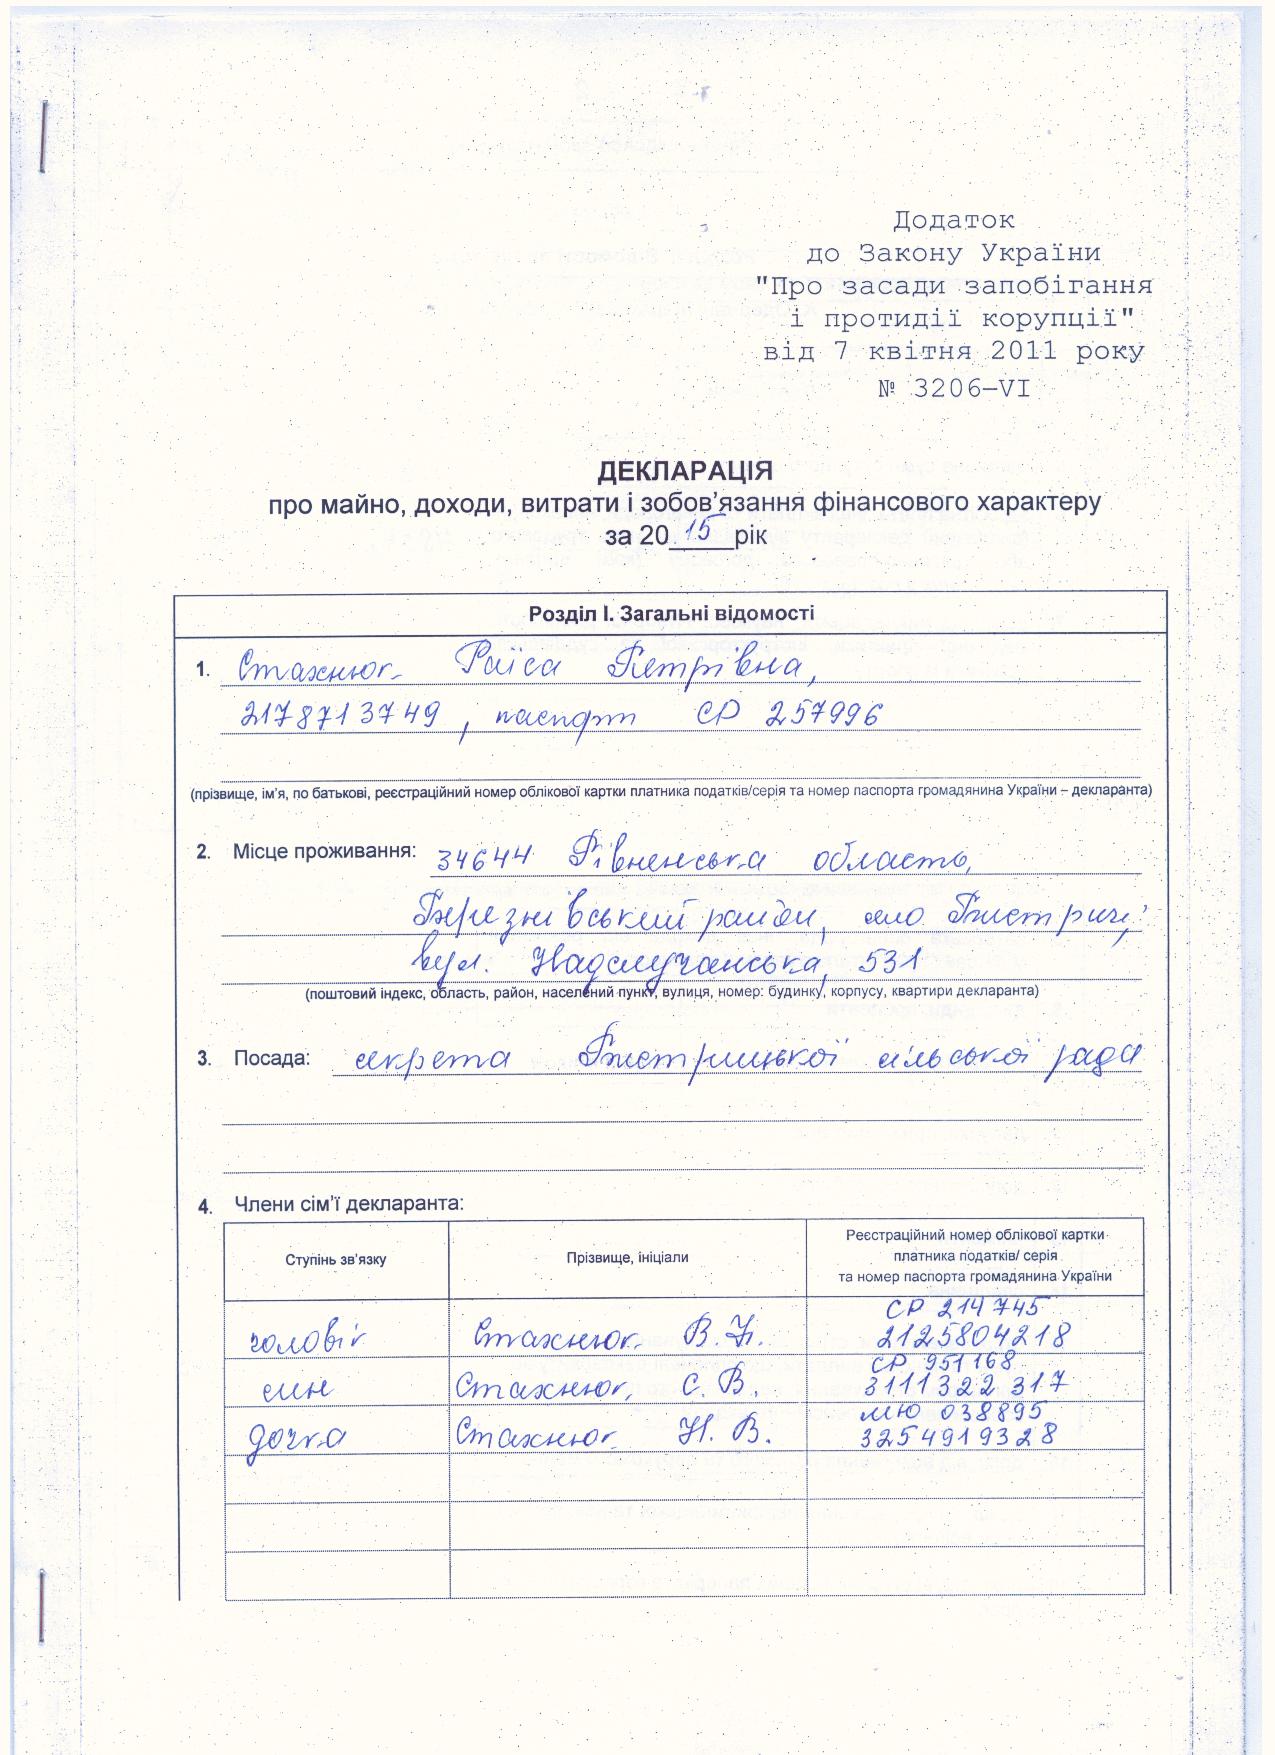 Додаток
до Закону України
"Про засади запобігання
і протидії корупції"
від 7 квітня 2011 року
№ 3206–VI
ДЕКЛАРАЦІЯ
про майно, доходи, витрати і зобов’язання фінансового характеру
за 20 15 рік
Розділ I. Загальні відомості
1. Стахнюк Раїса Петрівна,
2178713749, паспорт СР 257996
(прізвище, ім’я, по батькові, реєстраційний номер облікової картки платника податків/серія та номер паспорта громадянина України – декларанта)
2. Місце проживання: 34644 Рівненська область,
Березнівський район, село Бистричі,
вул. Надслучанська, 531
(поштовий індекс, область, район, населений пункт, вулиця, номер: будинку, корпусу, квартири декларанта)
3. Посада: секрета Бистрицької сільської ради
4. Члени сім’ї декларанта:
Ступінь зв’язку Прізвище, ініціали Реєстраційний номер облікової картки
платника податків/ серія
та номер паспорта громадянина України
СР 214745
чоловік Стахнюк В. Н. 2125804218
СР 951168
син Стахнюк С. В. 3111322317
МЮ 038895
дочка Стахнюк Н. В. 3254919328